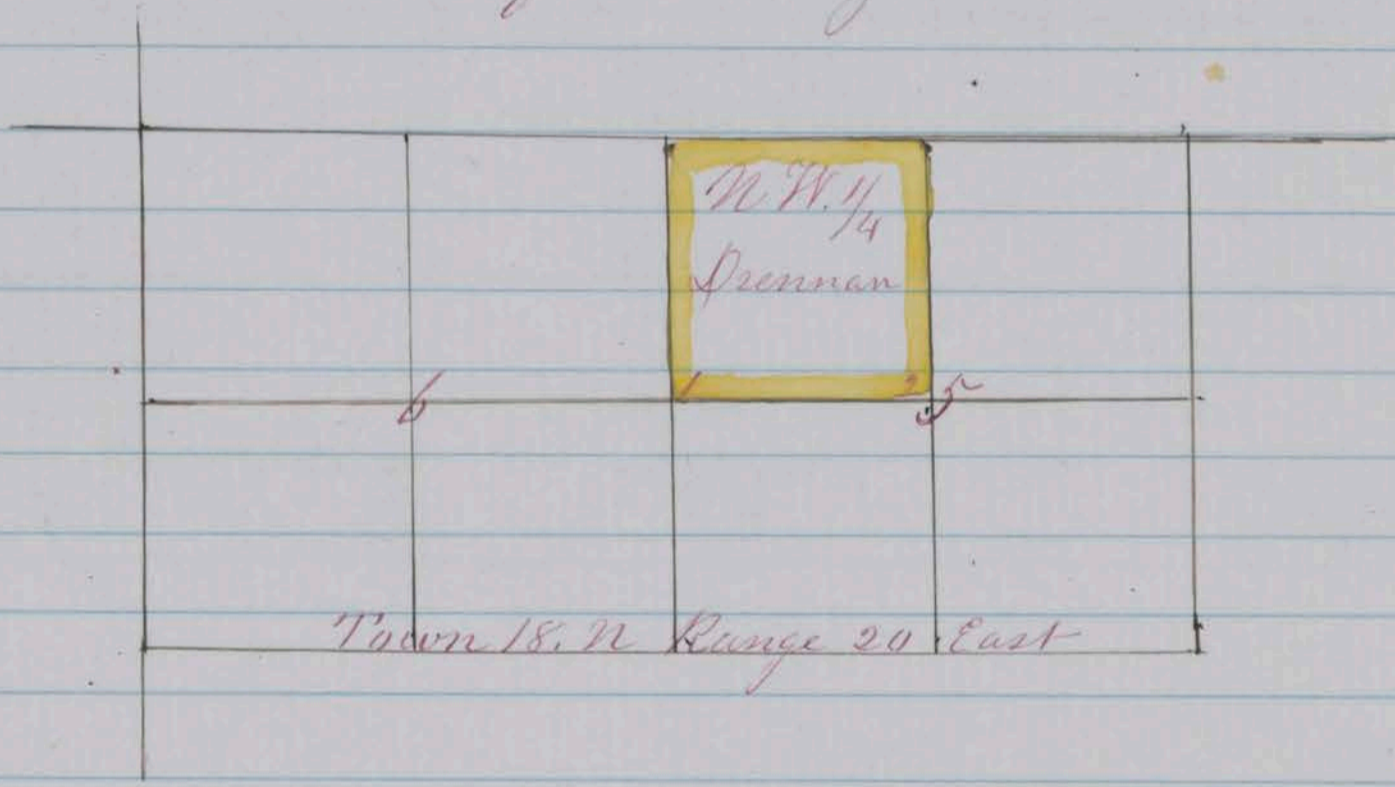 N.W. 1/4
Drennan
1 2
6 5
Town 18. N Range 20 East